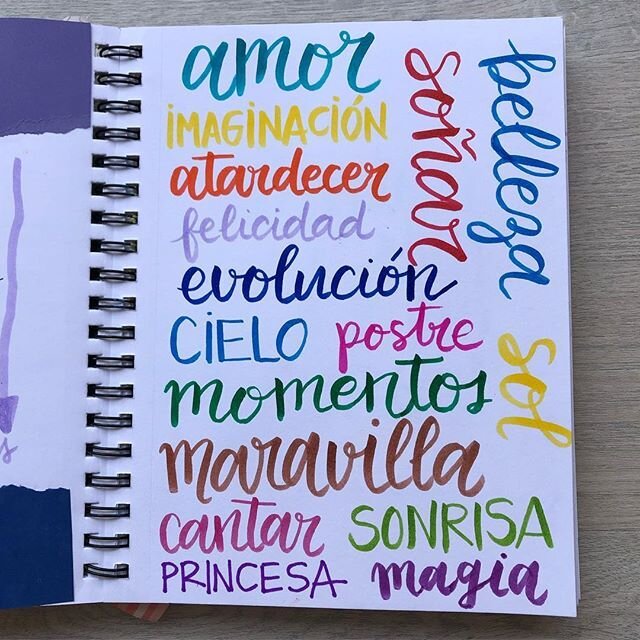 amor
IMAGINACIÓN
atardecer
felicidad
evolución
CIELO postre
momentos
maravilla
cantar SONRISA
PRINCESA magia
soñar
belleza
sol